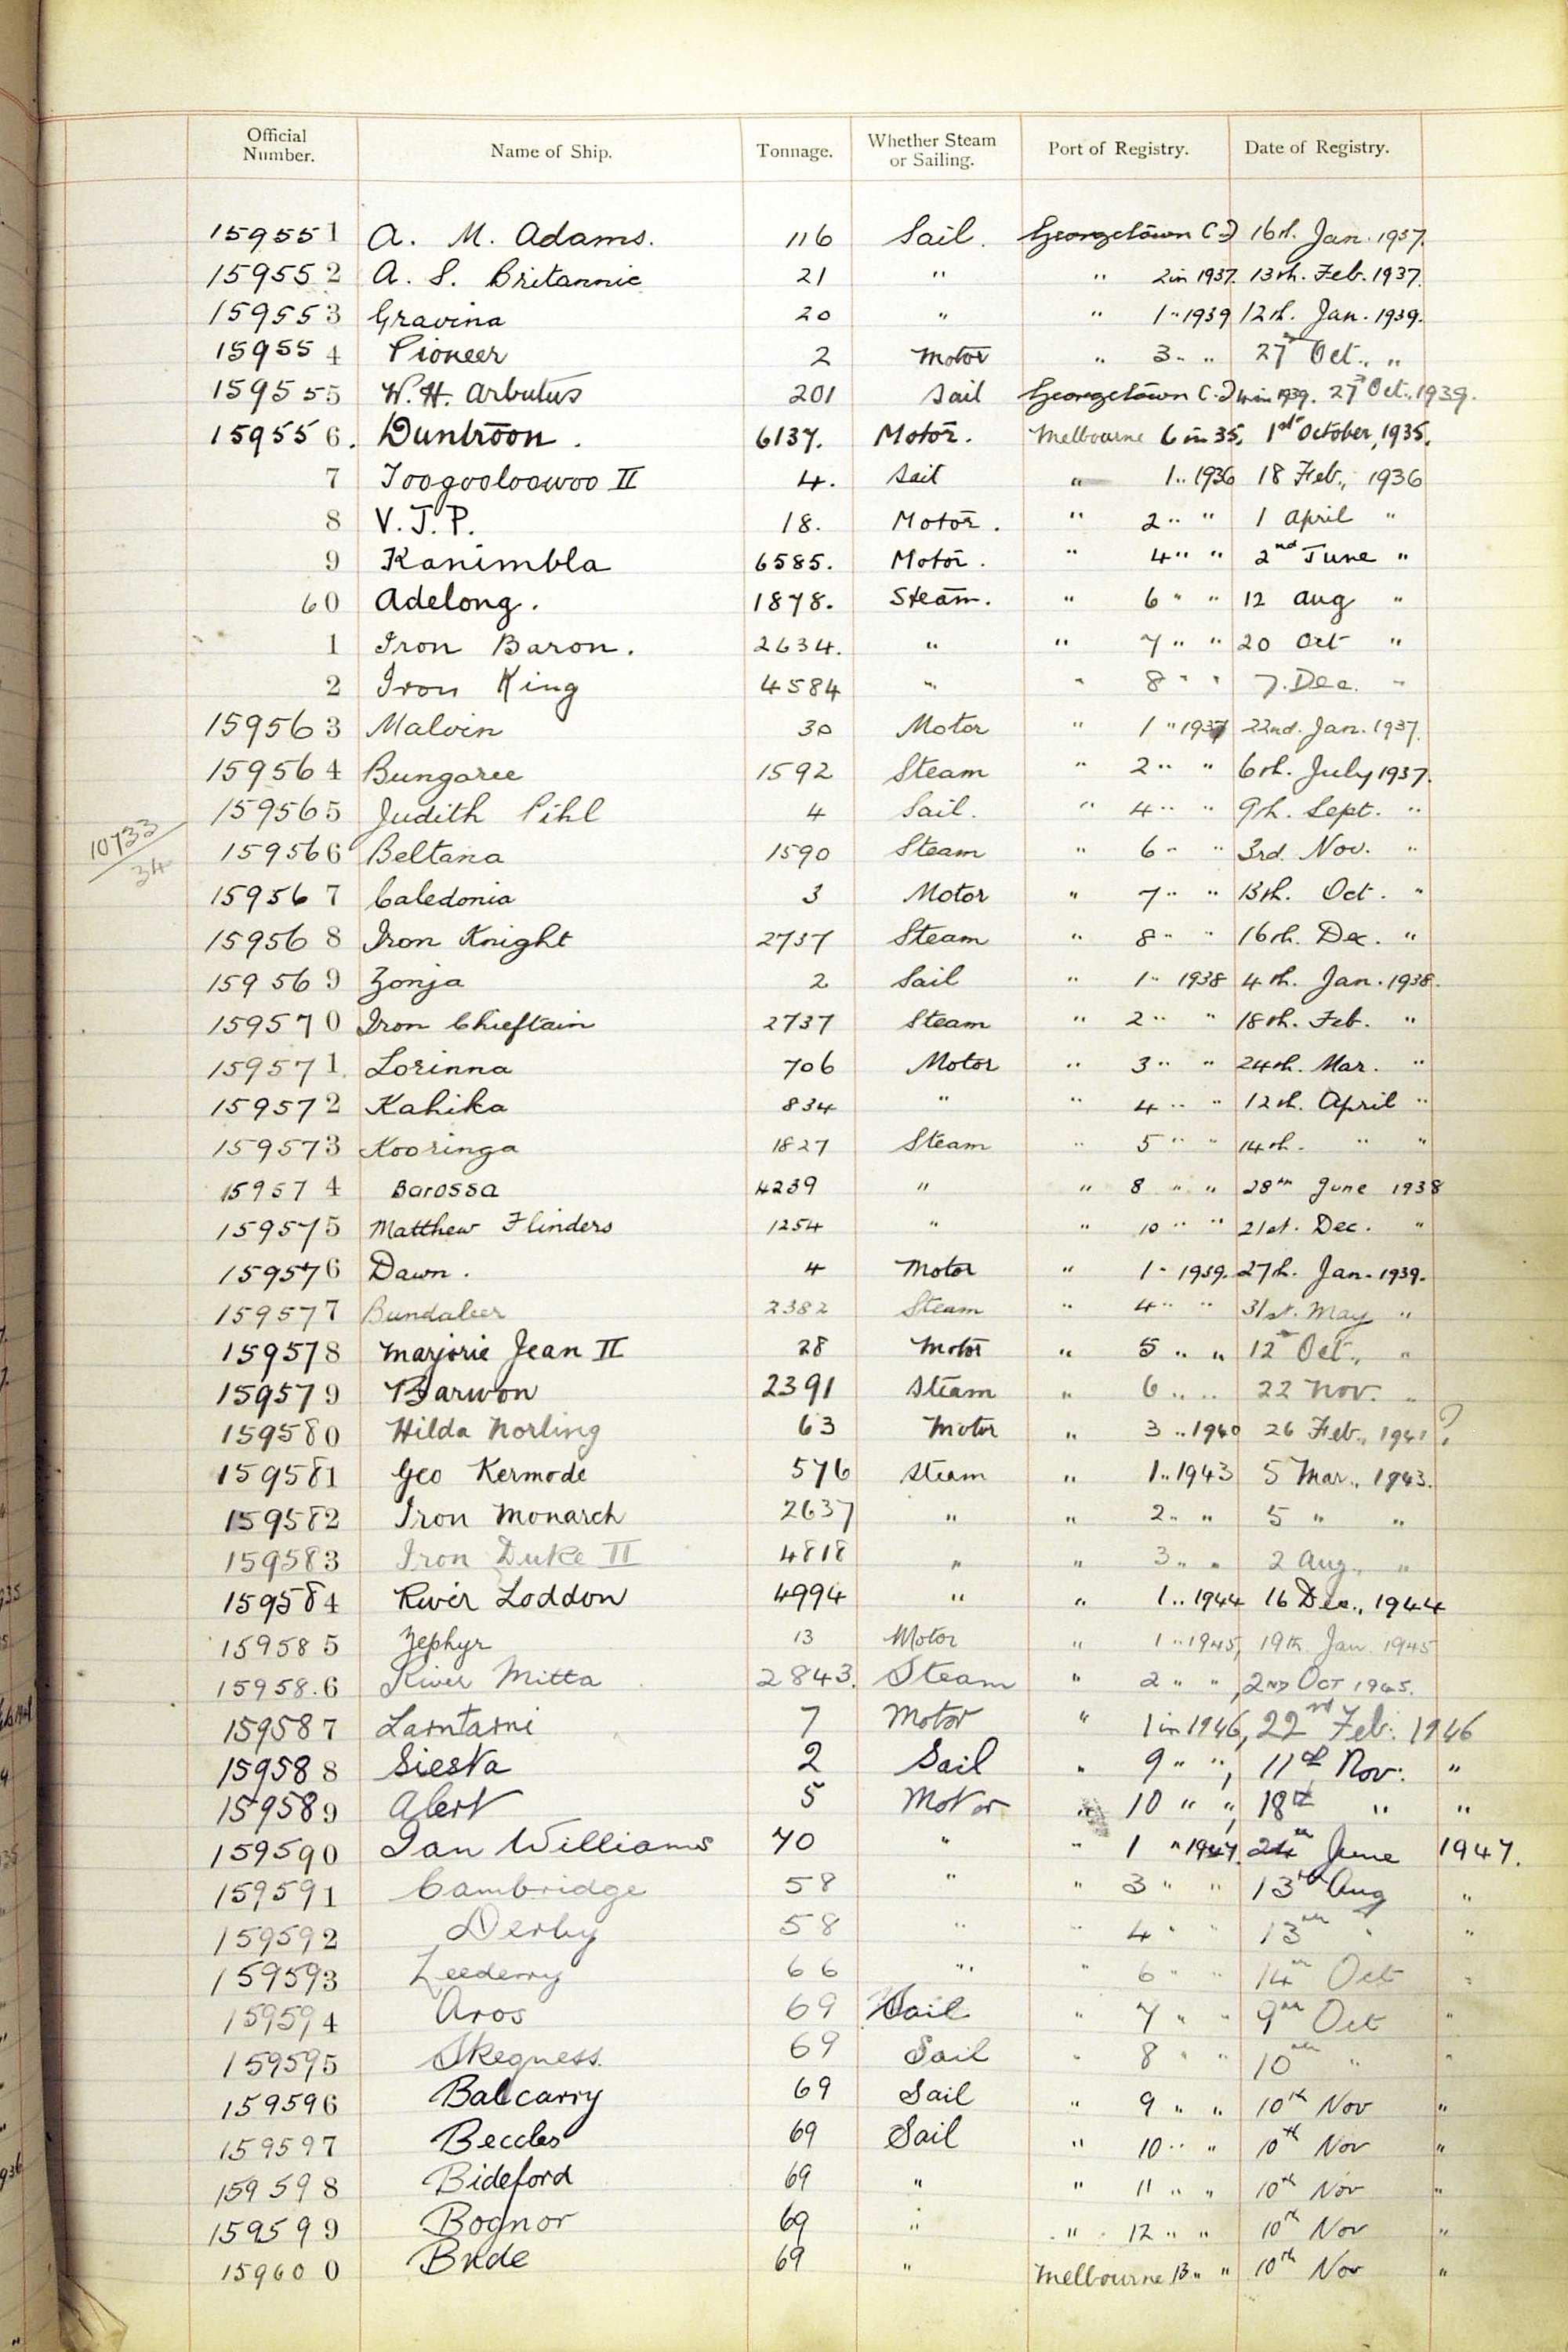 Official Number. Name of Ship. Tonnage. Whether Steam or Sailing. Port of Registry. Date of Registry.
159551 A. M. Adams. 116 Sail. Georgetown 16th. Jan. 1937.
159552 A. S. Britannic 21 " " 2 in 1937. 13th. Feb. 1937.
159553 Gravina 20 " " 1 " 1939 12th. Jan. 1939.
159554 Pioneer 2 Motor " 3 " " 27th Oct., "
159555 W. H. Arbutus 201 Sail Georgetown in 1939. 27th Oct., 1939.
159556. Duntroon. 6137. Motor. Melbourne 6 in 35, 1st October, 1935.
7 Toogooloowoo II 4. Sail " 1 " 1936 18 Feb., 1936
8 V. J. P. 18. Motor. " 2 " " 1 April "
9 Kanimbla 6585. Motor. " 4 " " 2nd June "
60 Adelong. 1878. Steam. " 6 " " 12 Aug "
1 Iron Baron. 2634. " " 7 " " 20 Oct "
2 Iron King 4584 " " 8 " " 7. Dec. "
159563 Malvin 30 Motor " 1 " 1937 22nd. Jan. 1937.
159564 Bungaree 1592 Steam " 2 " " 6th. July 1937.
159565 Judith Pihl 4 Sail. " 4 " " 9th. Sept. "
10733/34
159566 Beltana 1590 Steam " 6 " " 3rd. Nov. "
159567 Caledonia 3 Motor " 7 " " 13th. Oct. "
159568 Iron Knight 2737 Steam " 8 " " 16th. Dec. "
159569 Zonja 2 Sail " 1 " 1938 4th. Jan. 1938.
159570 Iron Chieftain 2737 Steam " 2 " " 18th. Feb. "
159571. Lorinna 706 Motor " 3 " " 24th. Mar. "
159572 Kahika 834 " " 4 " " 12th. April "
159573 Kooringa 1827 Steam " 5 " " 14th. " "
159574 Barossa 4239 " " 8 " " 28th June 1938
159575 Matthew Flinders 1254 " " 10 " " 21st. Dec. "
159576 Dawn. 4 Motor " 1 " 1939. 27th. Jan. 1939.
159577 Bundaleer 2382 Steam " 4 " " 31st. May "
159578 Marjorie Jean II 28 Motor " 5 " " 12th Oct., "
159579 Barwon 2391 Steam " 6 " " 22 Nov. "
159580 Hilda Norling 63 Motor " 3 " 1940 26 Feb., 1941?
159581 Geo Kermode 576 Steam " 1 " 1943 5 Mar., 1943.
159582 Iron Monarch 2637 " " 2 " " 5 " "
159583 Iron Duke II 4818 " " 3 " " 2 Aug., "
159584 River Loddon 4994 " " 1 " 1944 16 Dec., 1944
159585 Zephyr 13 Motor " 1 " 1945, 19th Jan. 1945
159586 River Mitta 2843. Steam " 2 " ", 2ND OCT 1945.
159587 Larntarni 7 Motor " 1 in 1946, 22nd Feb. 1946
159588 Siesta 2 Sail " 9 " ", 11th Nov. "
159589 Alert 5 Motor " 10 " ", 18th " "
159590 Ian Williams 70 " " 1 " 1947. 24th June 1947.
159591 Cambridge 58 " " 3 " " 13th Aug "
159592 Derby 58 " " 4 " " 13th " "
159593 66 " " 6 " " 14th Oct "
159594 Aros 69 Sail " 7 " " 9th Oct "
159595 Skegness. 69 Sail " 8 " " 10th " "
159596 Balcarry 69 Sail " 9 " " 10th Nov "
159597 Beccles 69 Sail " 10 " " 10th Nov "
159598 Bideford 69 " " 11 " " 10th Nov "
159599 Bognor 69 " " 12 " " 10th Nov "
159600 Bude 69 " Melbourne 13 " " 10th Nov "